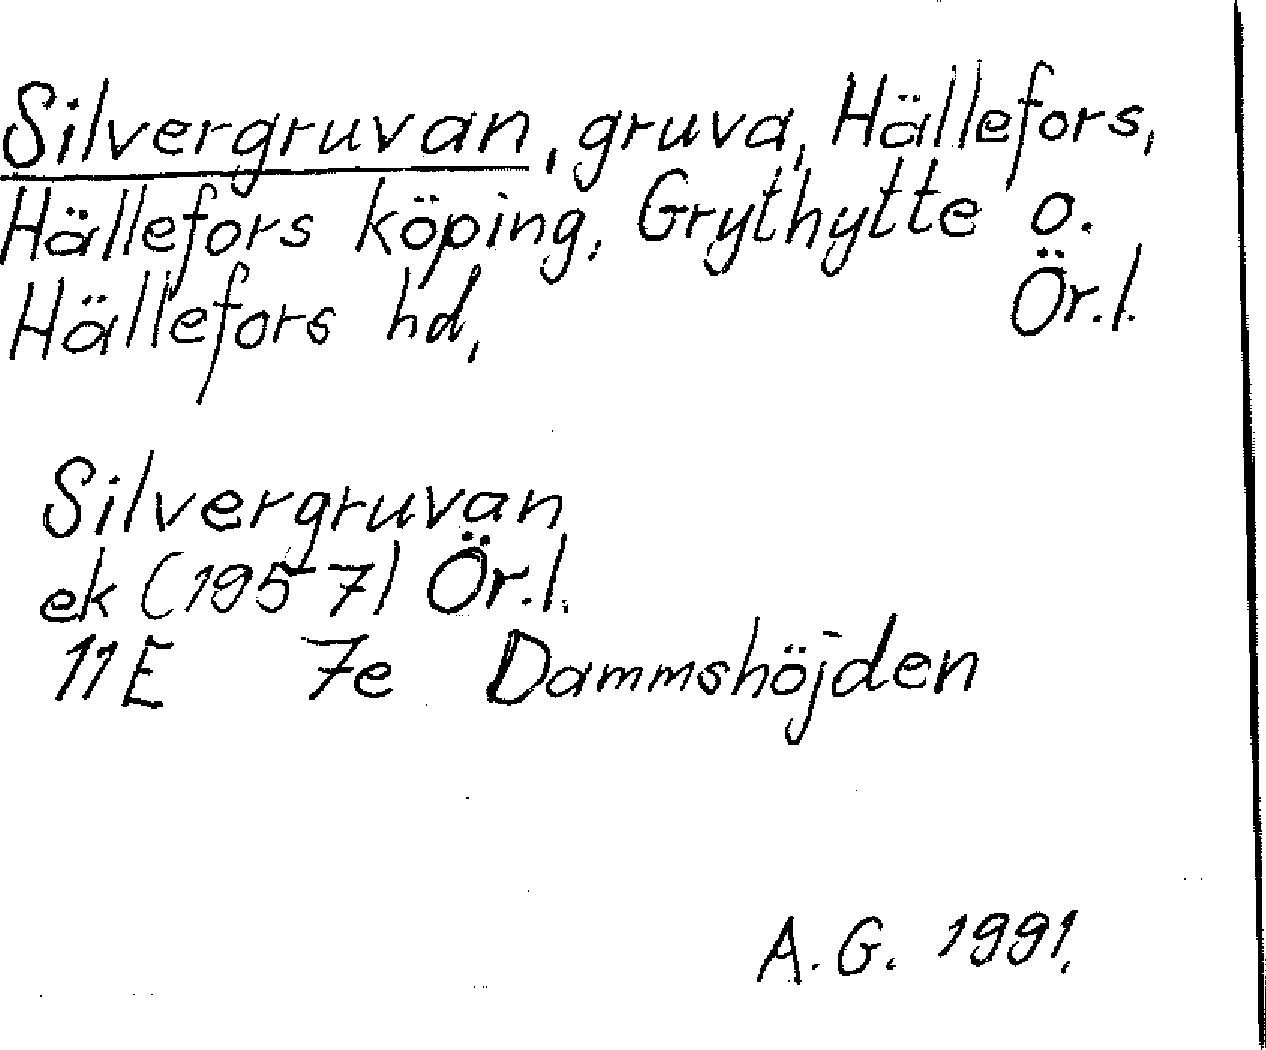 Silvergruvan, gruva, Hällefors,
Hällefors köping, Grythytte o.
Hällefors hd, Ör.l.
Silvergruvan
ek (1957) Ör.l.
11E 7e Dammshöjden
A.G. 1991.